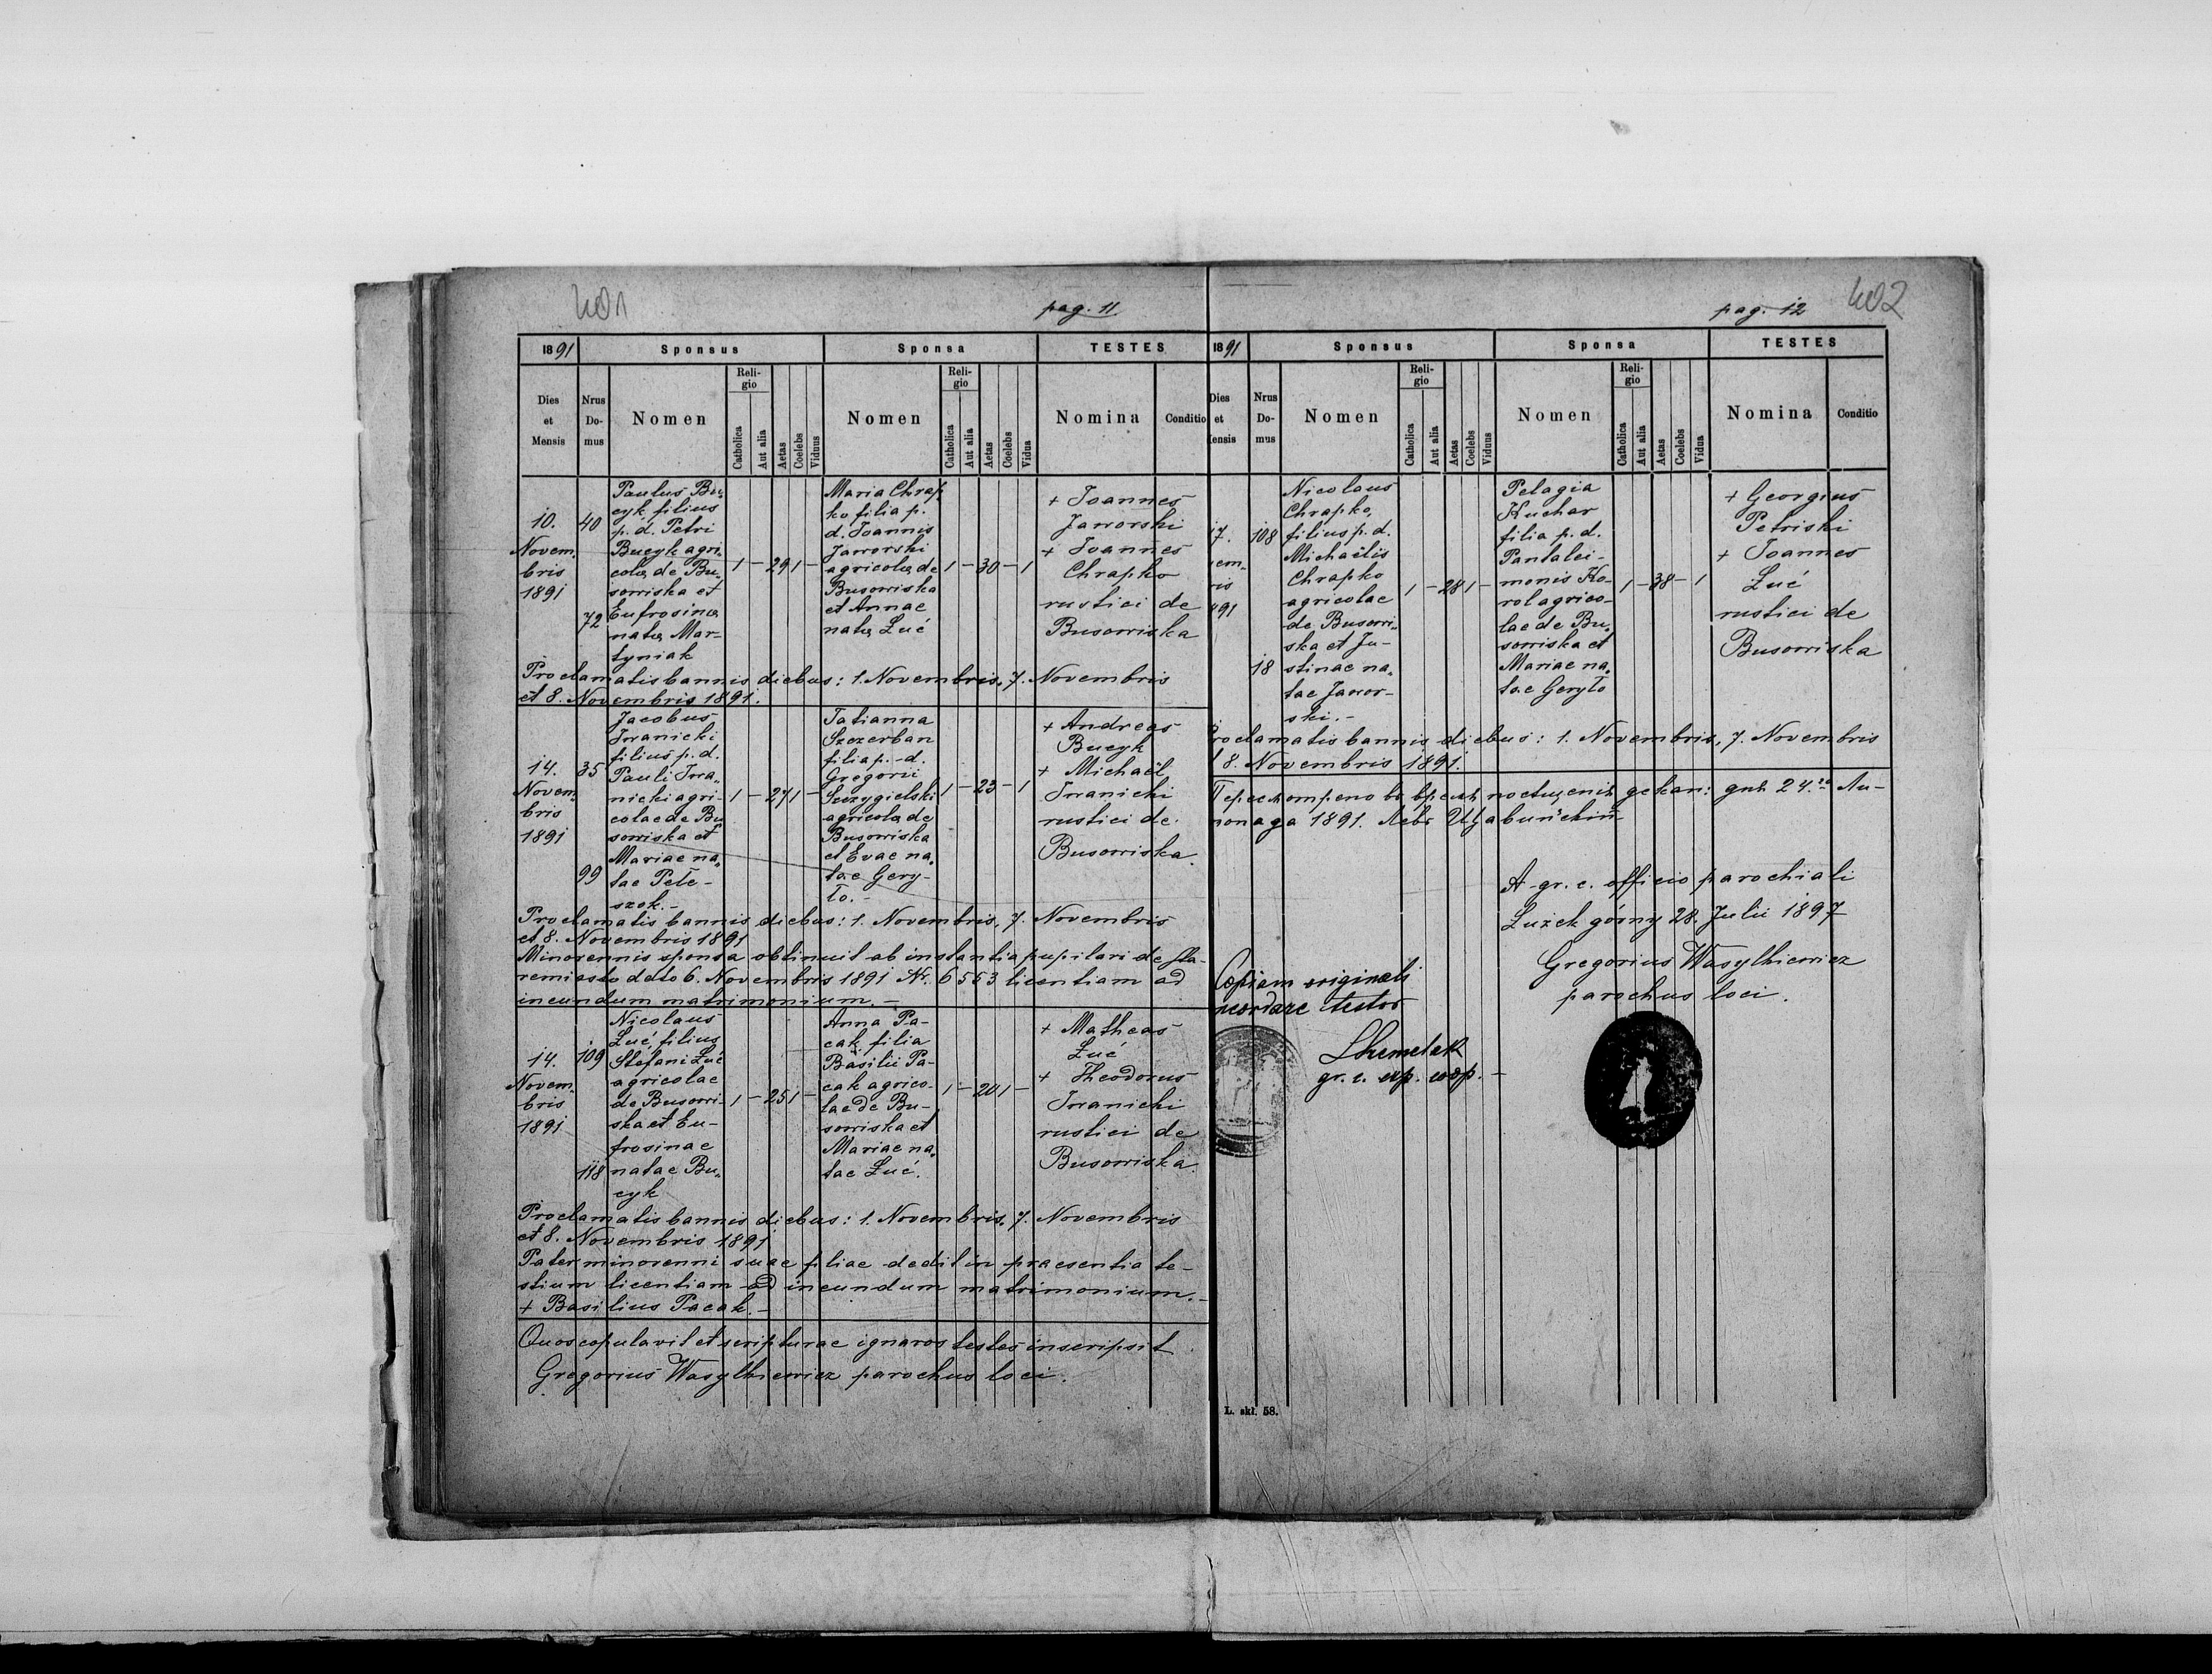 401
pag. 11
1891
Sponsus
Sponsa
TESTES
Dies
et
Mensis
Nrus
Do-
mus
Nomen
Reli-
gio
Catholica
Aut alia
Aetas
Coelebs
Viduus
Nomen
Reli-
gio
Catholica
Aut alia
Aetas
Coelebs
Vidua
Nomina
Conditio
10.
Novem„
bris
1891
40
72
Paulus Bu„
cyk filius
p. d. Petri
Bucyk agri„
colae de Bu„
sowiska et
Eufrosinae
natae Mar-
tyniak
1 – 29 1 –
Maria Chrap„
ko filia p.
d. Joannis
Jaworski
agricolae de
Busowiska
et Annae
natae Łuć
1 – 30 – 1
+ Joannes
Jaworski
+ Joannes
Chrapko
rustici de
Busowiska
Proclamatis bannis diebus: 1. Novembris, 7. Novembris
et 8. Novembris 1891.
14.
Novem„
bris
1891
35
99
Jacobus
Iwanicki
filius p. d.
Pauli Iwa„
nicki agri-
colae de Bu„
sowiska et
Mariae na„
tae Pele-
szok.-
1 – 27 1 –
Tatianna
Szczerban
filia p. d.
Gregorii
agricolae de
Busowiska
et Evae na„
tae Gery-
ło.-
1 – 23 – 1
+ Andreas
Bucyk
+ Michaël
Iwanicki
rustici de
Busowiska.
Proclamatis bannis diebus: 1. Novembris, 7. Novembris
et 8. Novembris 1891
Minorennis sponsa obtinuit ab instantia pupilari de Sta-
remiasto ddto 6. Novembris 1891 Nr. 6553 licentiam ad
ineundum matrimonium. –
14.
Novem„
bris
1891
109
118
Nicolaus
Łuć, filius
Stefani Łuć
agricolae
de Busowi-
ska et Eu-
frosinae
natae Bu„
cyk
1 – 25 1 –
Anna Pa-
cak filia
Basilii Pa-
cak agrico-
lae de Bu-
sowiska et
Mariae na„
tae Łuć.
1 – 20 1 –
+ Matheas
Łuć
+ Theodorus
Iwanicki
rustici de
Busowiska.
Proclamatis bannis diebus: 1. Novembris, 7. Novembris
et 8. Novembris 1891
Pater minorenni suae filiae dedit in praesentia te-
stium licentiam ad ineundum matrimonium.-
+ Basilius Pacak.-
Quos copulavit et scripturae ignaros testes inscripsit
Gregorius Wasylkiewicz parochus loci.
pag. 12
402
1891
Sponsus
Sponsa
TESTES
Dies
et
Mensis
Nrus
Do-
mus
Nomen
Reli-
gio
Catholica
Aut alia
Aetas
Coelebs
Viduus
Nomen
Reli-
gio
Catholica
Aut alia
Aetas
Coelebs
Vidua
Nomina
Conditio
17.
vem-
ris
1891
108
18
Nicolaus
Chrapko,
filius p. d.
Michaëlis
Chrapko
agricolae
de Busowi„
ska et Ju-
stinae na„
tae Jawor-
ski.-
1 – 28 1 –
Pelagia
Kuchar
filia p. d.
Pantalei-
monis Ko-
rol agrico-
lae de Bu„
sowiska et
Mariae na„
tae Geryło
1 – 38 – 1
+ Georgius
Petriski
+ Joannes
Łuć
rustici de
Busowiska
Proclamatis bannis diebus: 1. Novembris, 7. Novembris
8. Novembris 1891.
24. Ли-
1891.
A gr. c. officio parochiali
Łużek górny 28. Julii 1897
Gregorius Wasylkiewicz
parochus loci.
Copiam originali
testor
gr. c.
L. skł. 58.